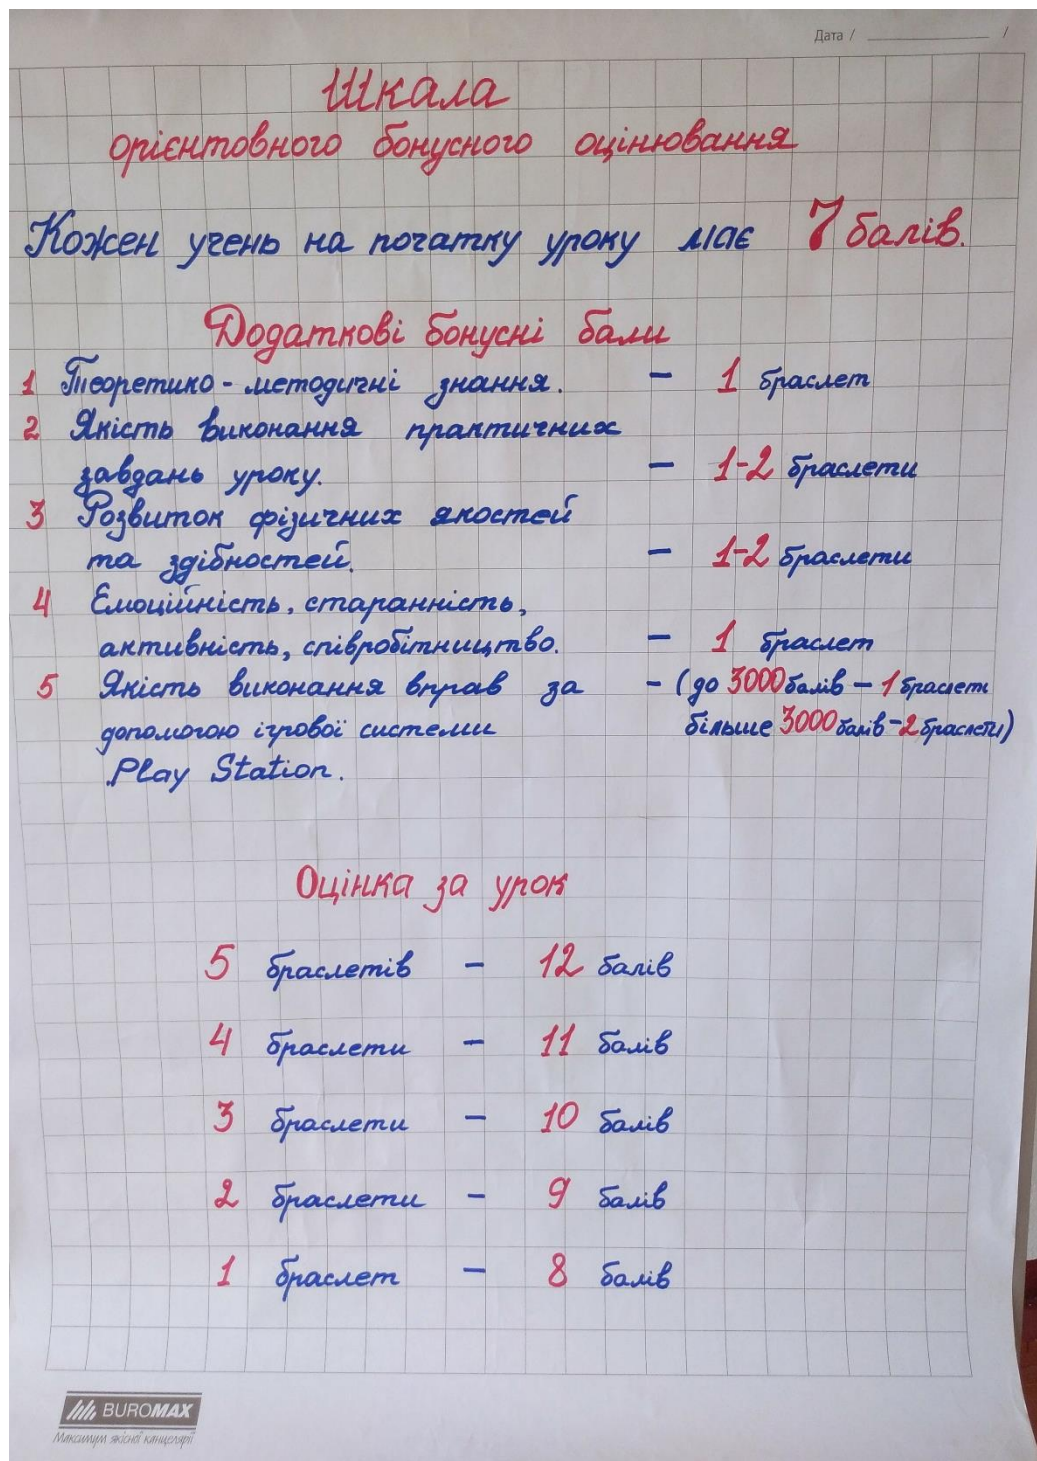 Дата / ____________ /
Шкала
орієнтовного бонусного оцінювання
Кожен учень на початку уроку має 7 балів.
Додаткові бонусні бали
1 Теоретико-методичні знання. – 1 браслет
2 Якість виконання практичних
завдань уроку. – 1-2 браслети
3 Розвиток фізичних якостей
та здібностей. – 1-2 браслети
4 Ємоційність, старанність,
активність, співробітництво. – 1 браслет
5 Якість виконання вправ за – (до 3000 балів – 1 браслет
допомогою ігрової системи більше 3000 балів – 2 браслети)
Play Station.
Оцінка за урок
5 браслетів – 12 балів
4 браслети – 11 балів
3 браслети – 10 балів
2 браслети – 9 балів
1 браслет – 8 балів
BUROMAX
Максимум якісної канцелярії